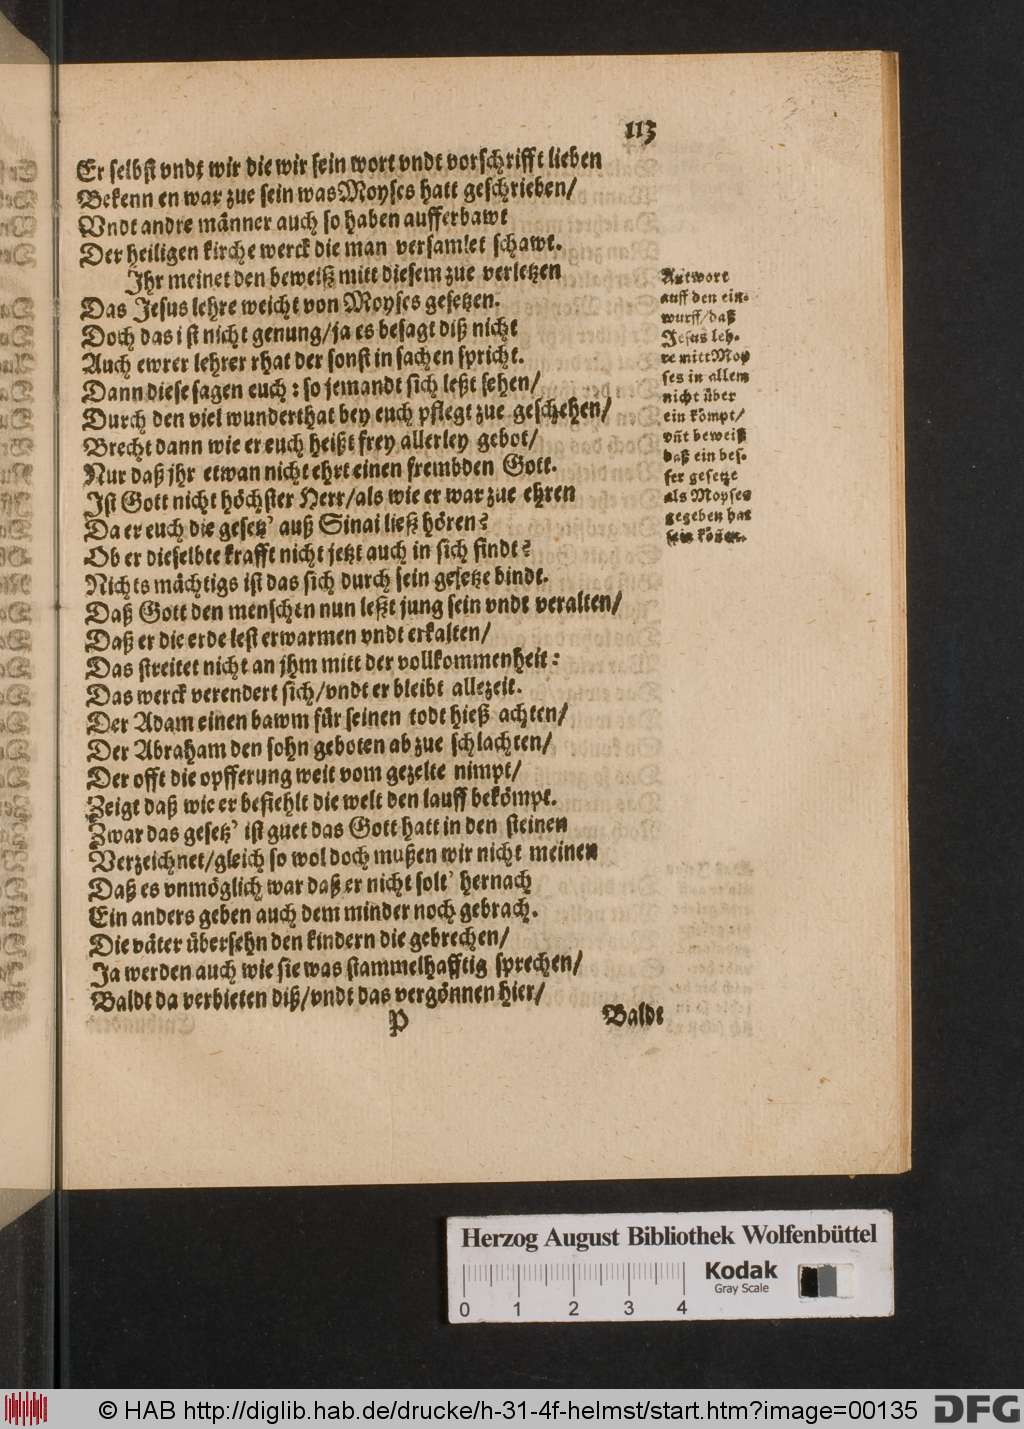 113
Er selbst vndt wir die wir sein wort vndt vorschrifft lieben
Bekenn en war zue sein was Moyses hatt geschrieben/
Vndt andre männer auch so haben aufferbawt
Der heiligen kirche werck die man versamlet schawt.
Jhr meinet den beweiß mitt diesem zue verletzen
Das Jesus lehre weicht von Moyses gesetzen.
Doch das i st nicht genung/ja es besagt diß nicht
Auch ewrer lehrer rhat der sonst in sachen spricht.
Dann diese sagen euch: so jemandt sich leßt sehen/
Durch den viel wunderthat bey euch pflegt zue geschehen/
Brecht dann wie er euch heißt frey allerley gebot/
Nur daß jhr etwan nicht ehrt einen frembden Gott.
Jst Gott nicht höchster Herr/als wie er war zue ehren
Da er euch die gesetz' auß Sinai ließ hören?
Ob er dieselbte krafft nicht jetzt auch in sich findt?
Nichts mächtigs ist das sich durch sein gesetze bindt.
Daß Gott den menschen nun leßt jung sein vndt veralten/
Daß er die erde lest erwarmen vndt erkalten/
Das streitet nicht an jhm mitt der vollkommenheit:
Das werck verendert sich/vndt er bleibt allezeit.
Der Adam einen bawm für seinen todt hieß achten/
Der Abraham den sohn geboten ab zue schlachten/
Der offt die opfferung weit vom gezelte nimpt/
Zeigt daß wie er befiehlt die welt den lauff bekömpt.
Zwar das gesetz' ist guet das Gott hatt in den steinen
Verzeichnet/gleich so wol doch mußen wir nicht meinen
Daß es vnmöglich war daß er nicht solt' hernach
Ein anders geben auch dem minder noch gebrach.
Die väter übersehn den kindern die gebrechen/
Ja werden auch wie sie was stammelhafftig sprechen/
Baldt da verbieten diß/vndt das vergönnen hier/
P Baldt
Antwort
auff den ein-
wurff/daß
Jesus leh-
re mitt Moy
ses in allem
nicht über
ein kömpt/
vn̄t beweiß
daß ein bes-
ser gesetze
als Moyses
gegeben hat
sein köñen.
Herzog August Bibliothek Wolfenbüttel
Kodak
Gray Scale
0 1 2 3 4
© HAB http://diglib.hab.de/drucke/h-31-4f-helmst/start.htm?image=00135
DFG